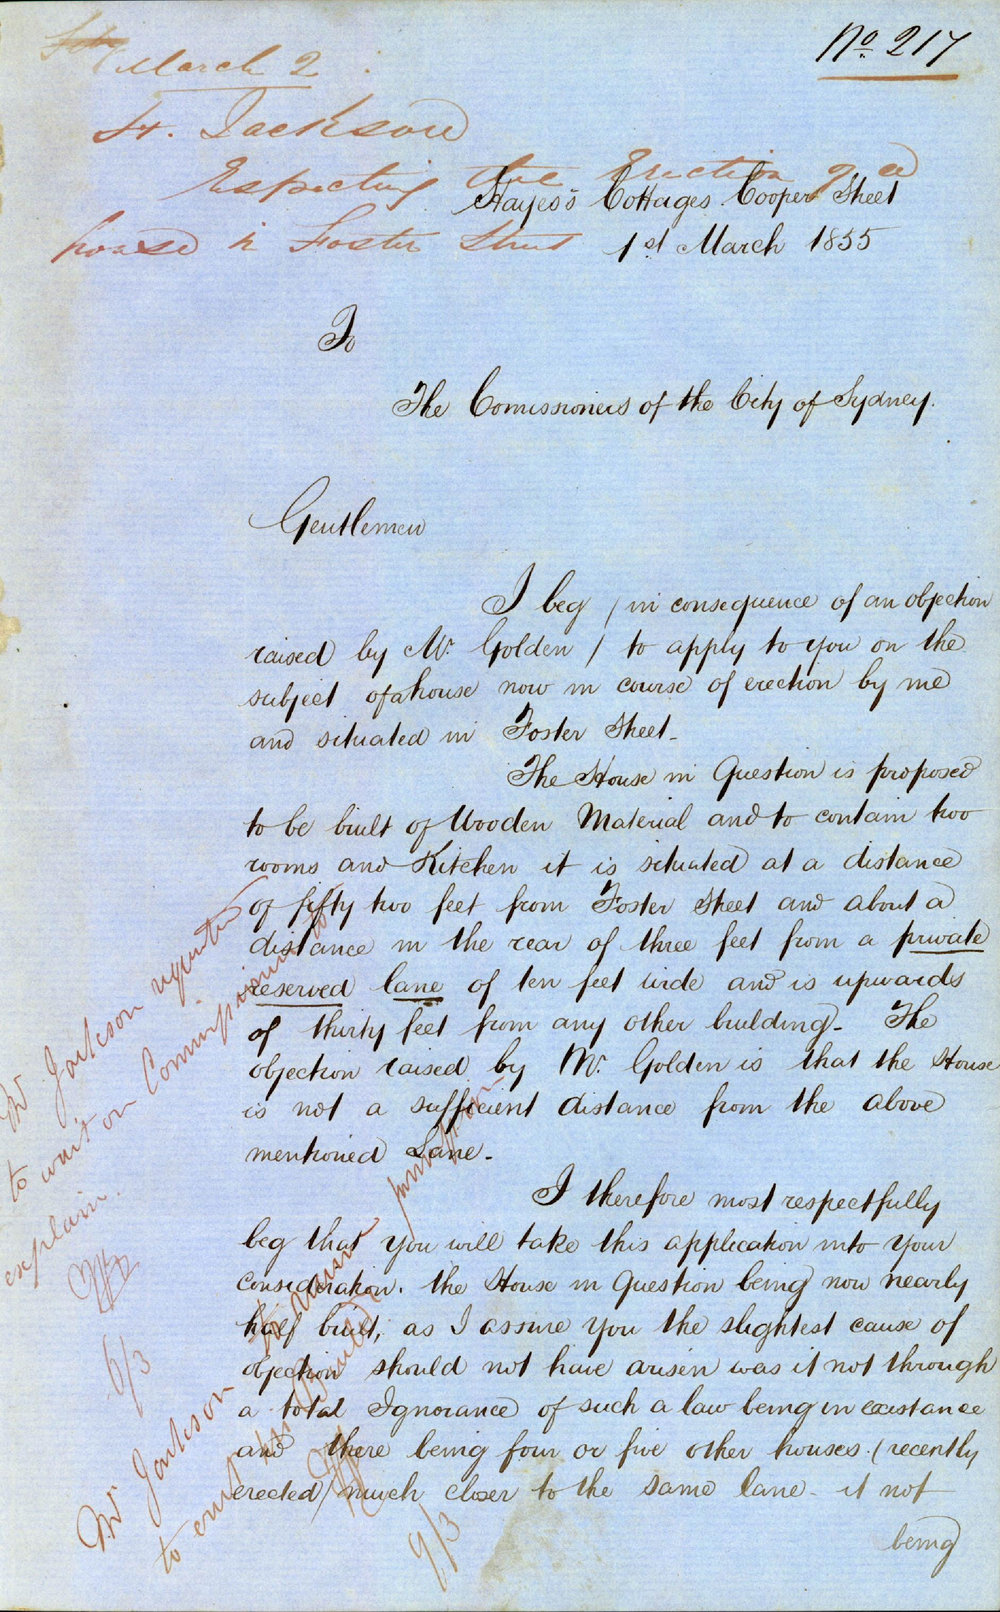 No. 217
March 2
Jackson
Especting the Erection of a
house in Foster Street
Hayes's Cottages Cooper Street
1st March 1855
To
The Comissioners of the City of Sydney.
Gentlemen
I beg / in consequence of an objection
raised by Mr. Golden / to apply to you on the
subject of a house now in course of erection by me
and situated in Foster Street.
The House in Question is proposed
to be built of Wooden Material and to contain two
rooms and Kitchen it is situated at a distance
of fifty two feet from Foster Street and about a
distance in the rear of three feet from a private
reserved lane of ten feet wide and is upwards
of thirty feet from any other building. The
objection raised by Mr. Golden is that the House
is not a sufficient distance from the above
mentioned Lane.
I therefore most respectfully
beg that you will take this application into your
consideration. the House in Question being now nearly
half built, as I assure you the slightest cause of
objection should not have arisen was it not through
a total Ignorance of such a law being in existance
and there being four or five other houses (recently
erected) much closer to the same lane - it not
being
Mr Jackson requested
to wait on Commissioners to
explain.
6/3
Mr Jackson
to
permission
9/3